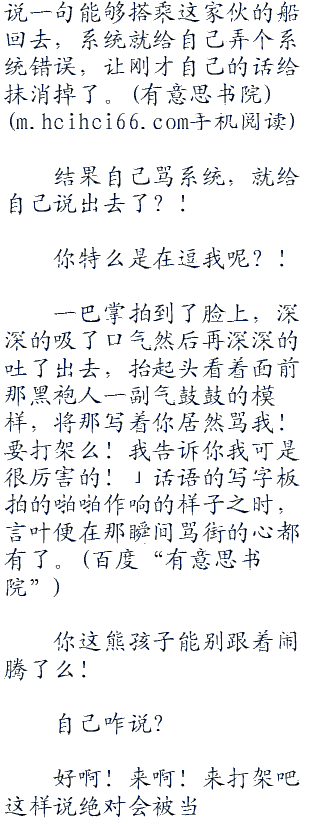 说一句能够搭乘这家伙的船
回去，系统就给自己弄个系
统错误，让刚才自己的话给
抹消掉了。(有意思书院)
(m.hcihci66.com手机阅读)
结果自己骂系统，就给
自己说出去了？！
你特么是在逗我呢？！
一巴掌拍到了脸上，深
深的吸了口气然后再深深的
吐了出去，抬起头看着面前
那黑袍人一副气鼓鼓的模
样，将那写着你居然骂我！
要打架么！我告诉你我可是
很厉害的！」话语的写字板
拍的啪啪作响的样子之时，
言叶便在那瞬间骂街的心都
有了。(百度“有意思书
院”)
你这熊孩子能别跟着闹
腾了么！
自己咋说？
好啊！来啊！来打架吧
这样说绝对会被当